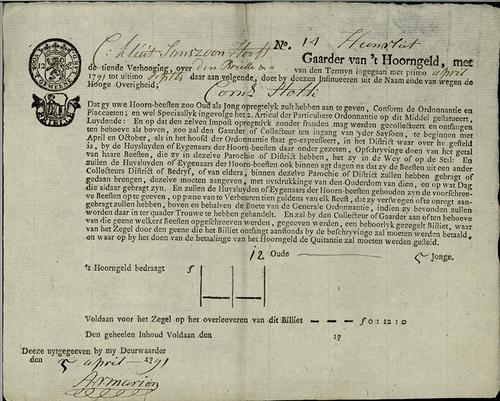 C: Kluit Janszoon Hooft No. 14 Heenvliet
Gaarder van 't Hoorngeld, met
de tiende Verhooging, over den Brielle van den Termyn ingegaan met primo april
1791 tot ultimo Septb daar aan volgende, doet by deezen Insinueeren uit de Naam ende van wegen de
Hooge Overigheid;
Corns
Dat gy uwe Hoorn-beesten zoo Oud als Jong opregtelyk zult hebben aan te geeven, Conform de Ordonnantie en
Placcaeten; En op dat wel Speciaallyk ingevolge het 2. Articul der Particuliere Ordonnantie op dit Middel gestatueert,
Luydende: En op dat den zelven Impost opregtelyk zonder frauden mag werden gecollecteert en ontfangen
ten behoeve als boven, zoo zal den Gaarder of Collecteur ten ingang van yder Saysoen, te beginnen met
April en October, als in het hoofd der Ordonnantie staat ge-expresseert, in het District waar over hy gesteld
is, by de Huysluyden of Eygenaars der Hoorn-beesten daar onder gezeten Opschryvinge doen van het getal
van haare Beesten, die zy in dezelve Parochie of District hebben, het zy in de Wey of op de Stal: En
zullen de Huysluyden of Eygenaars der Hoorn-beesten ook binnen agt dagen na dat zy de Beesten uit een ander
Collecteurs District of Bedryf, of van elders, binnen dezelve Parochie of District zullen hebben gebragt of
gedaan brengen, dezelve moeten aangeven, met uytdrukkinge van den Ouderdom van dien, en op wat Dag
die aldaar gebragt zyn. En zullen de Huysluyden of Eygenaars der Hoorn-beesten gehouden zyn de voorschree-
ve Beesten op te geeven, op pœne van te Verbeuren tien guldens van elk Beest, dat zy verswegen ofte onregt aan-
gebragt zullen hebben, boven en behalven de Boete van de Generale Ordonnantie, indien zy bevonden zullen
worden daar in ter quader Trouwe te hebben gehandelt. En zal by den Collecteur of Gaarder aan ofte ten behoeve
van die geene welkers Beesten opgeschreeven werden, gegeeven werden, een behoorlyk gezegelt Billiet, waar
van het Zegel door den geene die het Billiet ontfangt aanstonds by de beschryvinge zal moeten werden betaald,
en waar op by het doen van de betaalinge van het Hoorngeld de Quitantie zal moeten werden gesteld.
12 Oude 5 Jonge.
't Hoorngeld bedraagt f
Voldaan voor het Zegel op het overleeveren van dit Billiet — — — f 0 : 12 : 0
Den geheelen Inhoud Voldaan den 17
Deeze uytgegeeven by my Deurwaarder
den 5 april 1791